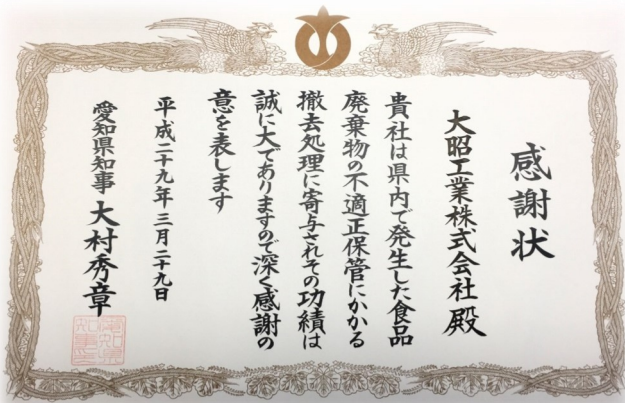 感謝状
大昭工業株式会社 殿
貴社は県内で発生した食品
廃棄物の不適正保管にかかる
撤去処理に寄与されその功績は
誠に大でありますので深く感謝の
意を表します
平成二十九年三月二十九日
愛知県知事 大村秀章